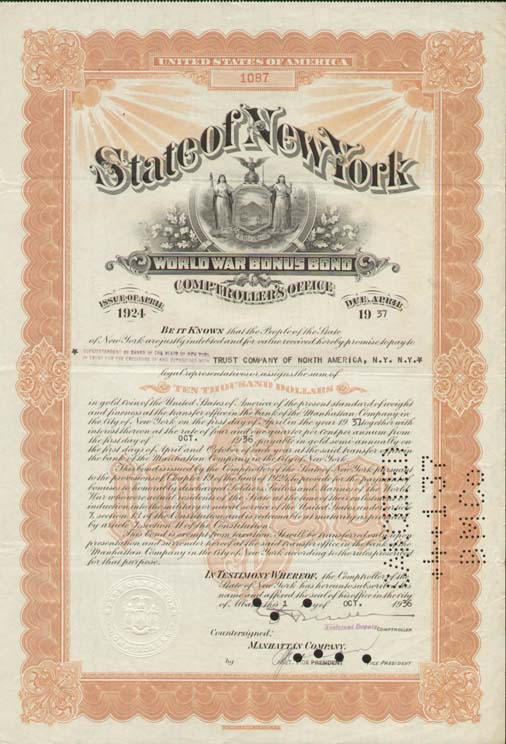 UNITED STATES OF AMERICA
1087
State of New York
WORLD WAR BONUS BOND
COMPTROLLER'S OFFICE
ISSUE OF APRIL
1924
DUE, APRIL
1937
BE IT KNOWN that the People of the State
of New York are justly indebted and for value received hereby promise to pay to
* SUPERINTENDENT OF BANKS OF THE STATE OF NEW YORK
IN TRUST FOR THE CREDITORS OF AND DEPOSITORS WITH
TRUST COMPANY OF NORTH AMERICA, N.Y. N.Y.*
legal representatives or assigns the sum of
TEN THOUSAND DOLLARS
in gold coin of the United States of America of the present standard of weight
and fineness at the transfer office in the bank of the Manhattan Company in
the City of New York on the first day of April in the year 1937 together with
interest thereon at the rate of four and one quarter per cent per annum from
the first day of OCT. 1936 payable in gold semi-annually on
the first days of April and October in each year at the said transfer office in
the bank of the Manhattan Company in the City of New York.
This bond is issued by the Comptroller of the State of New York pursuant
to the provisions of Chapter 19 of the laws of 1924 to provide for the payment of
bonus to honorably discharged
War who were residents of the State at the time of their
induction into the service of the United States
by article 7, section 11 of the Constitution.
This bond is exempt from taxation. It will be transferred only upon
presentation and surrender thereof at the said transfer office in the bank of the
Manhattan Company in the City of New York according to the rules prescribed
for that purpose.
IN TESTIMONY WHEREOF, the Comptroller of the
State has hereunto subscribed his
name and affixed the seal of his office in the city
of Albany this 1 day of OCT. 1936
Assistant Deputy COMPTROLLER
Countersigned:
MANHATTAN COMPANY.
by ASST. VICE PRESIDENT VICE PRESIDENT
CANCELLED
4 1 37